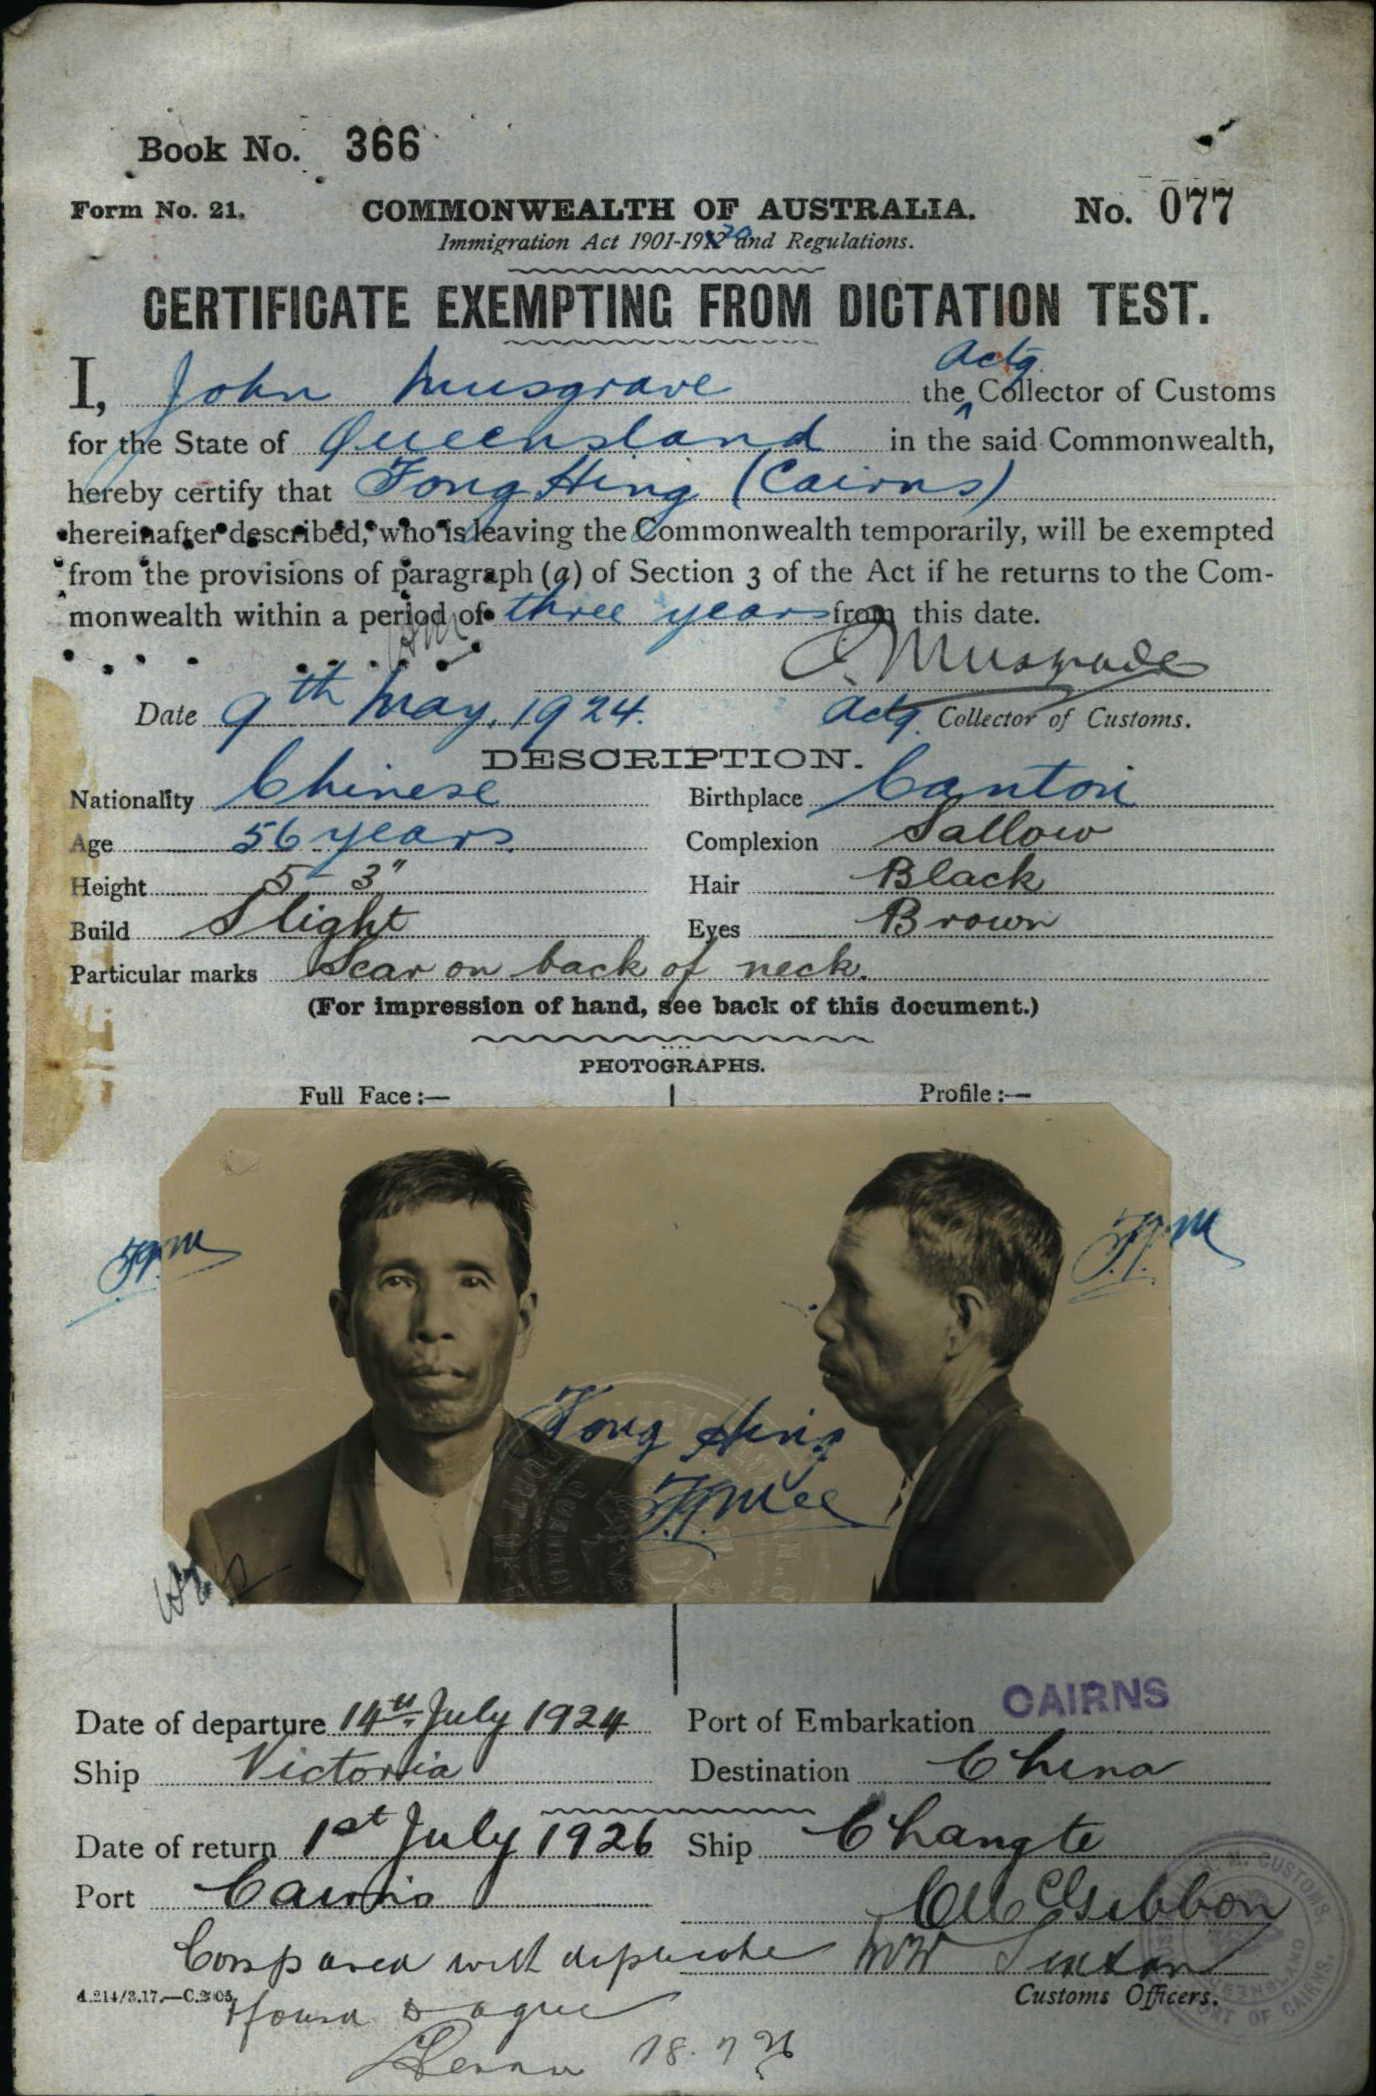 Book No. 366
Form No. 21. COMMONWEALTH OF AUSTRALIA. No. 077
Immigration Act 1901-1912 20 and Regulations.
CERTIFICATE EXEMPTING FROM DICTATION TEST.
I, John Musgrave the Actg. Collector of Customs
for the State of Queensland in the said Commonwealth,
hereby certify that Fong Hing (Cairns)
hereinafter described, who is leaving the Commonwealth temporarily, will be exempted
from the provisions of paragraph (a) of Section 3 of the Act if he returns to the Com-
monwealth within a period of three years from this date.
J. Musgrave
Date 9th May, 1924. Actg. Collector of Customs.
DESCRIPTION.
Nationality Chinese Birthplace Canton
Age 56 years Complexion Sallow
Height 5' 3" Hair Black
Build Slight Eyes Brown
Particular marks Scar on back of neck.
(For impression of hand, see back of this document.)
PHOTOGRAPHS.
Full Face:— Profile:—
Fong Hing
Date of departure 14th July 1924 Port of Embarkation CAIRNS
Ship Victoria Destination China
Date of return 1st July 1926 Ship Changte
Port Cairns
McGibbon
Compared with duplicate
Customs Officers.
found to agree
18.7.26